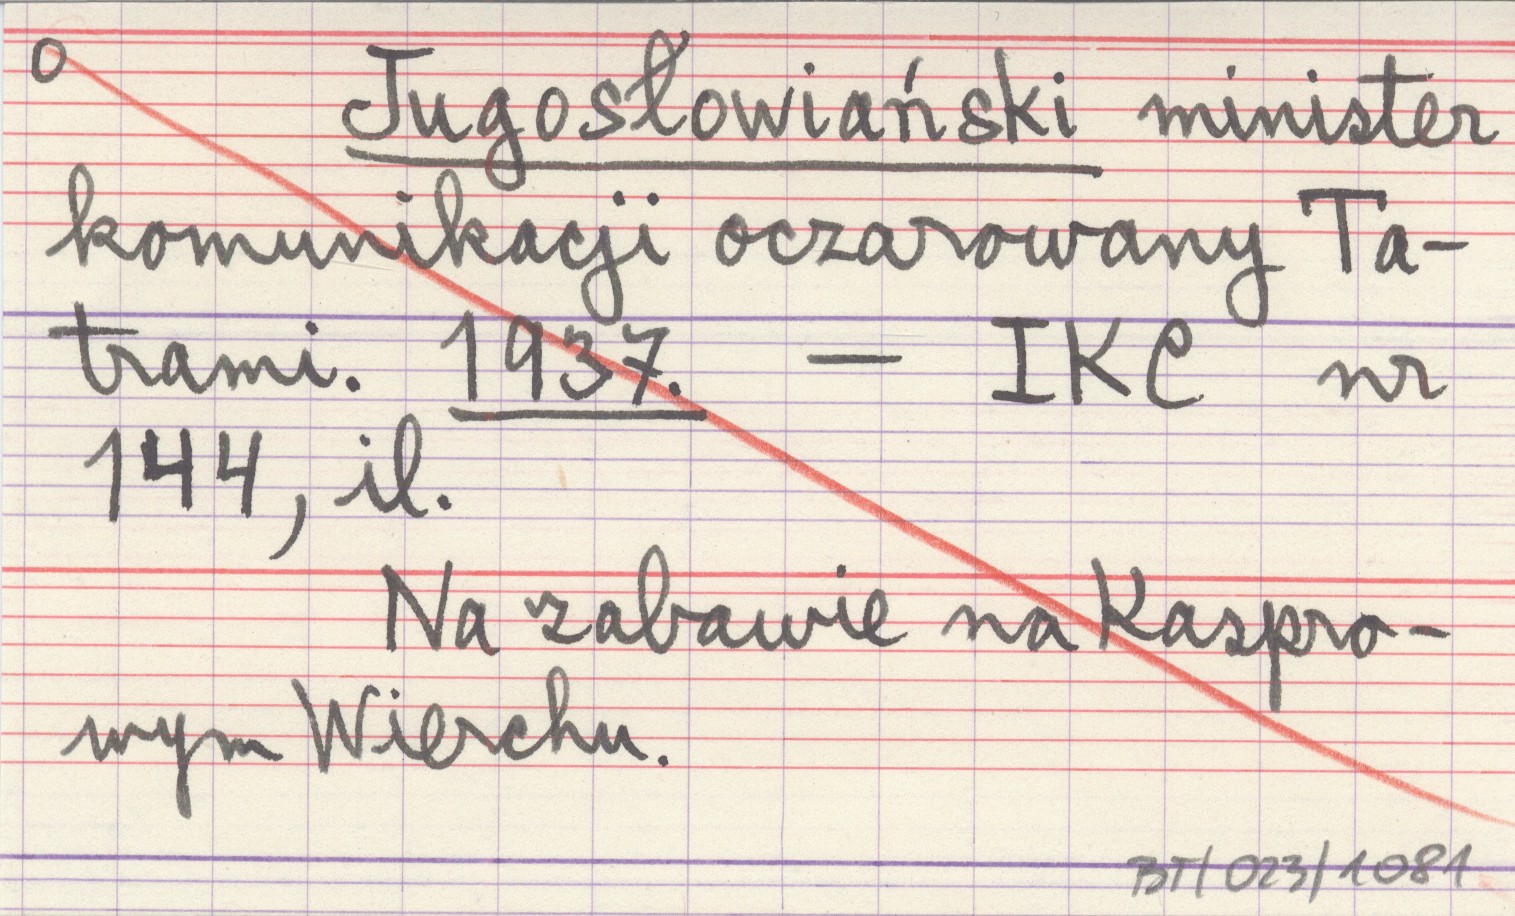 O Jugosłowiański minister
komunikacji oczarowany Ta-
trami. 1937. — IKC nr
144, il.
Na zabawie na Kaspro-
wym Wierchu.
BT/023/1081